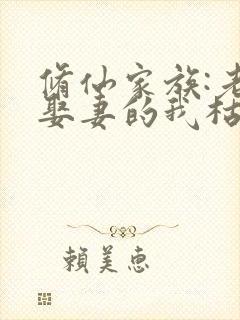 脩仙家族:老
娶妻的我枯
賴美惠